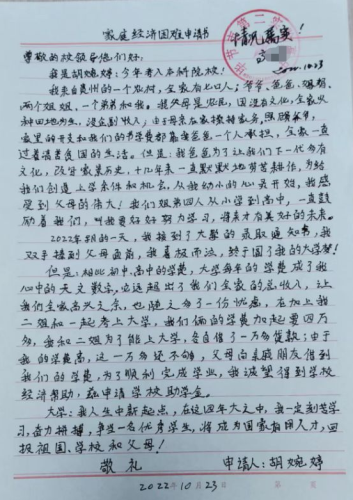 家庭经济困难申请书
情况属实!
2022.10.23
尊敬的校领导他们好:
我是胡婉婷,今年考入本科院校!
我来自贵州的一个农村,全家有七口人:爷爷、爸爸、妈妈、
两个姐姐、一个弟弟和我。我父母是农民,因没有文化,全家以
种田地为生,没金副收入;由于母亲在家操持家务,照顾爷爷,
家里的开支和我们的书学费都靠爸爸一个人承担,全家一直
过着清贫贫困的生活。但是,我爸爸为了让我们下一代多有
文化,改变家里历史,十几年来一直默默地劳苦耕作,为给
我们创造上学条件和机会,从我幼小的心灵开始,我感
受到父母的伟大!我们姐弟四人从小学到高中,一直鼓
励着我们,叫我要好好努力学习,将来才有美好的未来。
2022年8月的一天,我接到了大学的录取通知书,我
双手接到父母面前,我喜极而泣,终于圆了我的大学梦!
但是:相比初中、高中的学费,大学每年的学费成了我
心中的天文数字,远远超出了我们全家的总收入,让
我们全家高兴之余,也随之多了一份忧虑,在加上我
二姐和一起考上大学,我们俩的学费加起要四万
多,我和二姐为了能上大学,各自借了一万多贷款;由于
我的学费高,这一万多还不够,父母向亲戚朋友借到
我们的学费,为了顺利完成学业,我渴望得到学校
经济帮助,兹申请学校助学金。
大学:我人生中新起点,在这四年大文中,我一定刻苦学
习,奋力拼搏,争当一名优秀学生,将成为国家有用人才,回
报祖国、学校和父母!
敬礼
申请人:胡婉婷
2022年10月23日